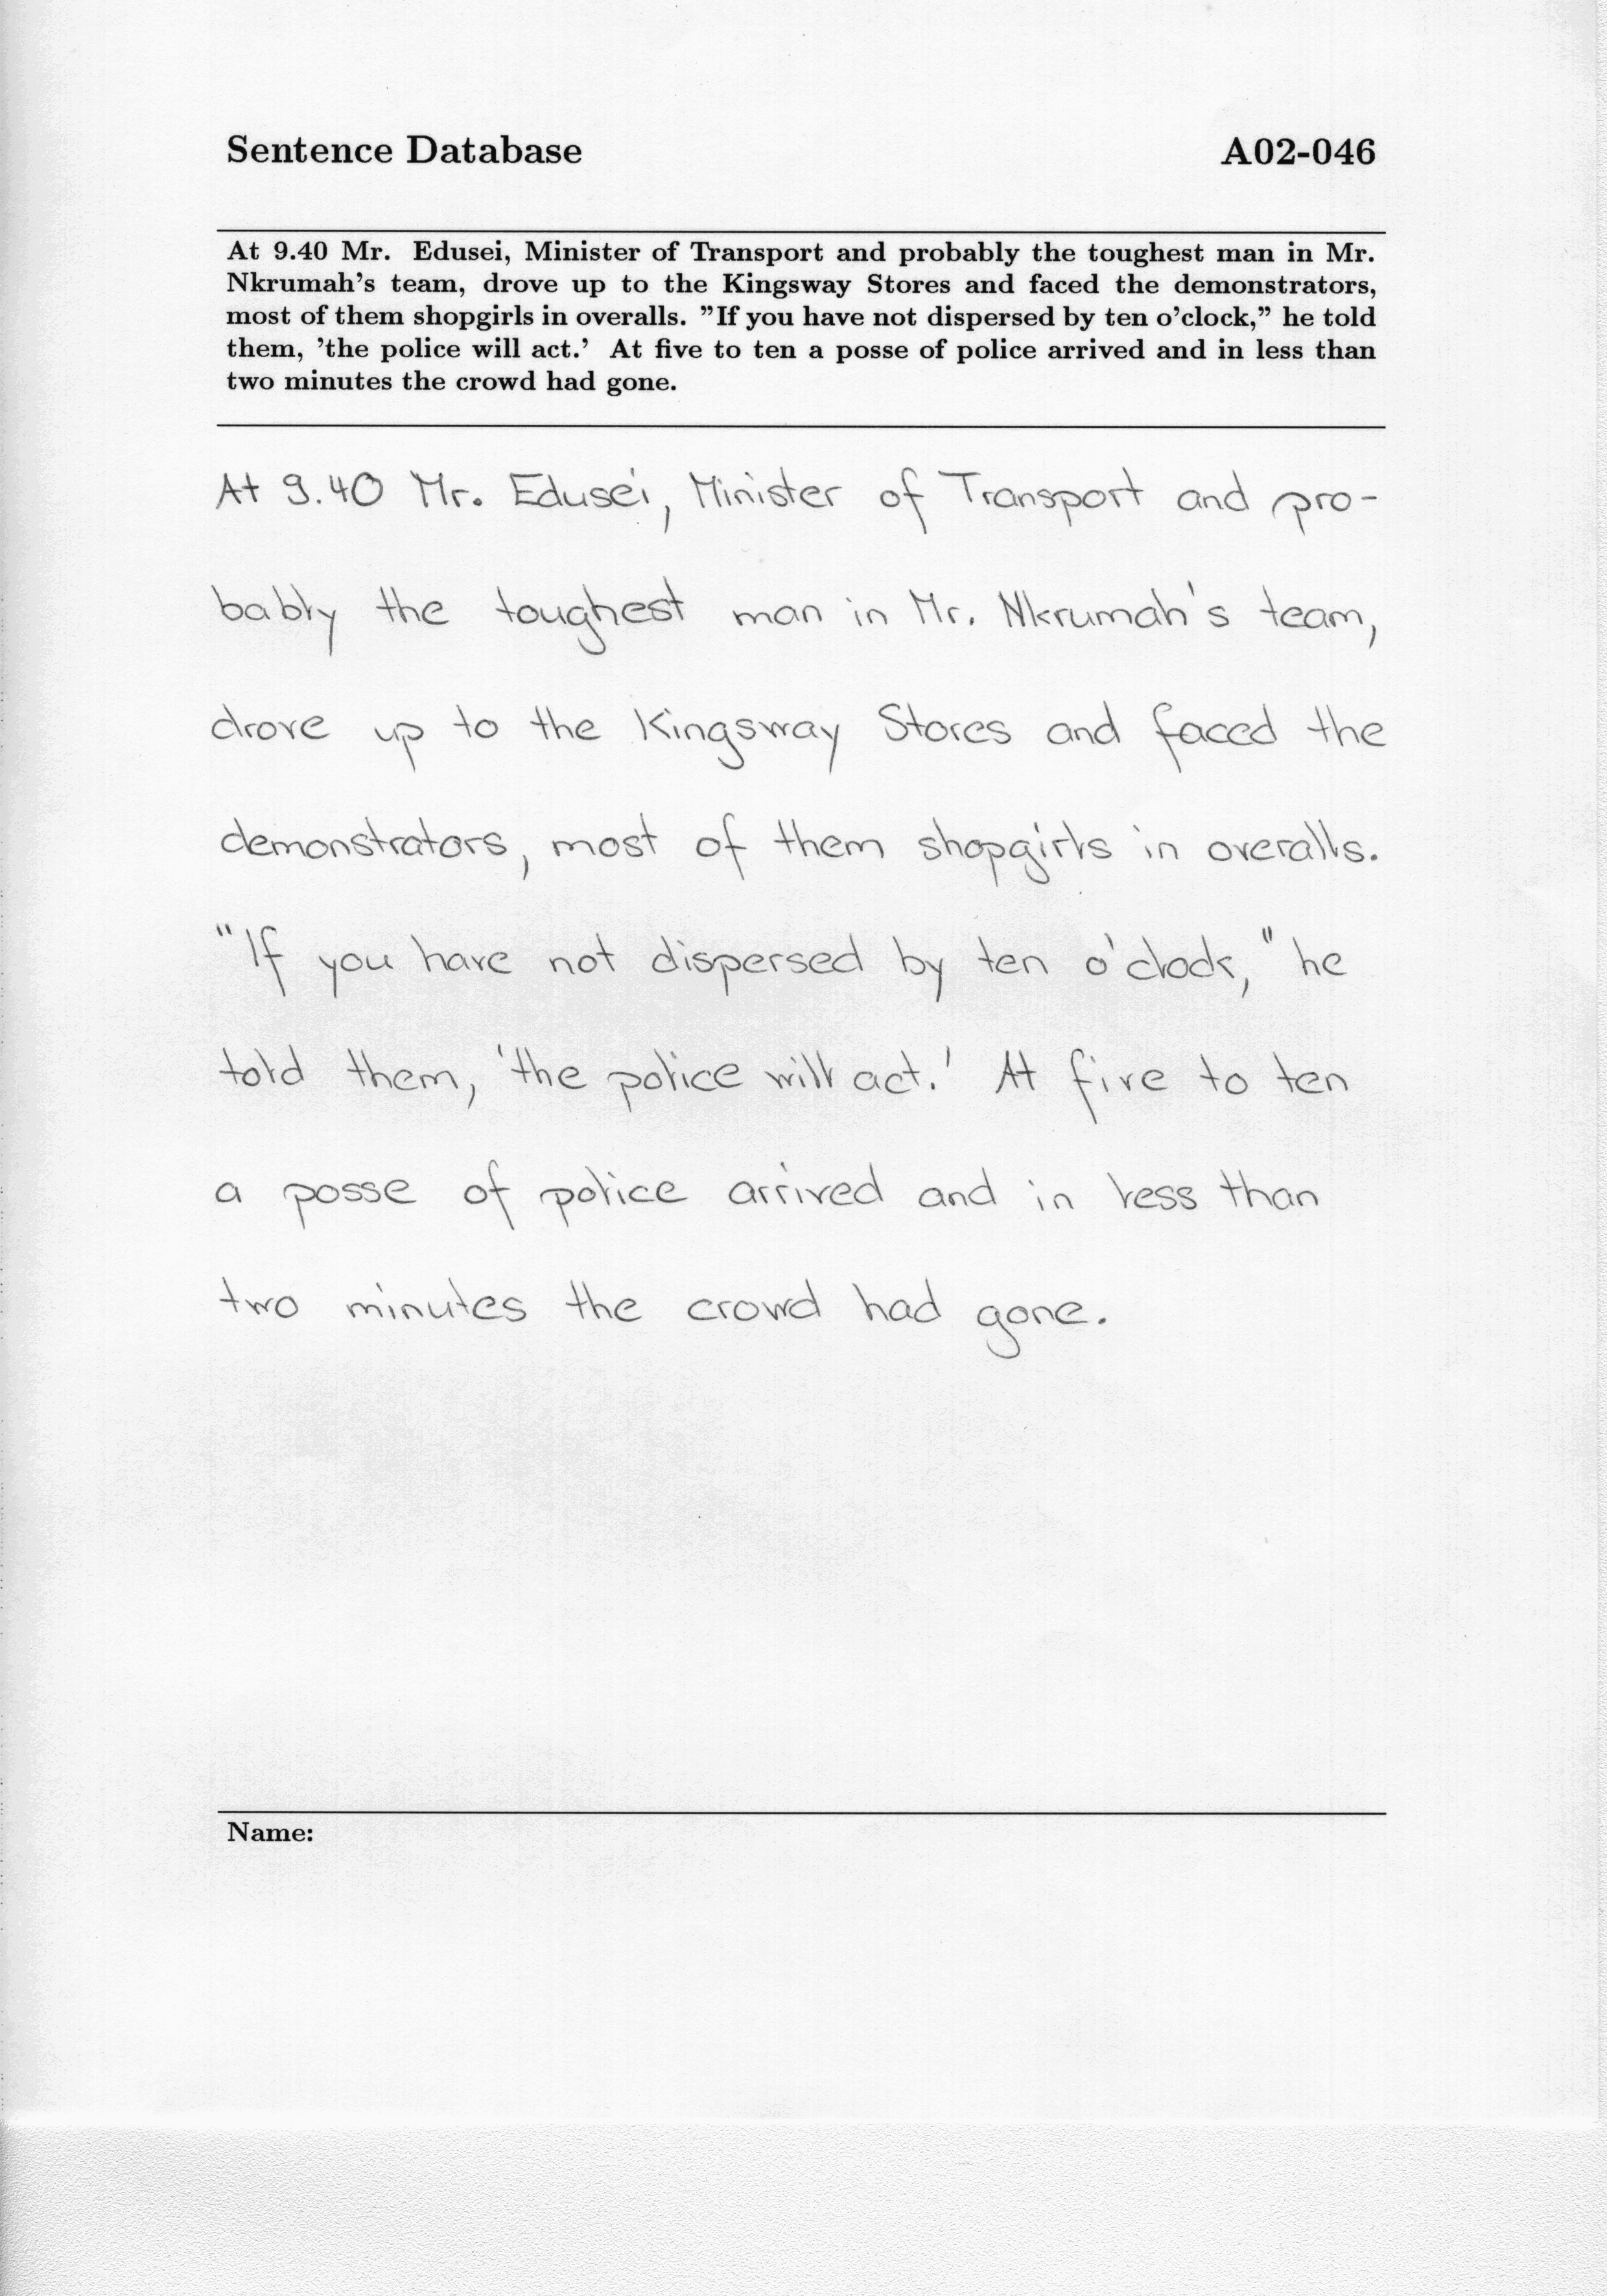 Sentence Database A02-046
At 9.40 Mr. Edusei, Minister of Transport and probably the toughest man in Mr.
Nkrumah's team, drove up to the Kingsway Stores and faced the demonstrators,
most of them shopgirls in overalls. ”If you have not dispersed by ten o'clock,” he told
them, ’the police will act.’ At five to ten a posse of police arrived and in less than
two minutes the crowd had gone.
At 9.40 Mr. Edusei, Minister of Transport and pro-
bably the toughest man in Mr. Nkrumah's team,
drove up to the Kingsway Stores and faced the
demonstrators, most of them shopgirls in overalls.
"If you have not dispersed by ten o'clock," he
told them, 'the police will act.' At five to ten
a posse of police arrived and in less than
two minutes the crowd had gone.
Name: